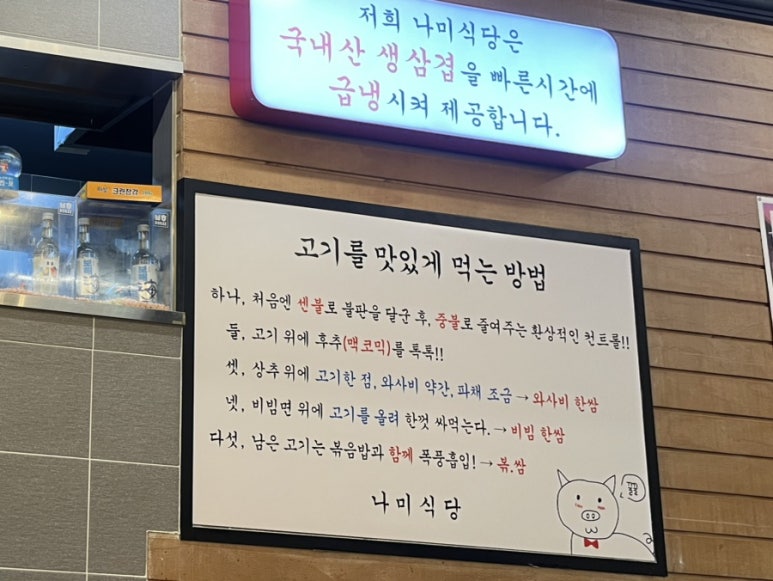 저희 나미식당은
국내산 생삼겹을 빠른시간에
급냉시켜 제공합니다.
고기를 맛있게 먹는 방법
하나, 처음엔 센불로 불판을 달군 후, 중불로 줄여주는 환상적인 컨트롤!!
둘, 고기 위에 후추(맥코믹)를 톡톡!!
셋, 상추 위에 고기한 점, 와사비 약간, 파채 조금 → 와사비 한쌈
넷, 비빔면 위에 고기를 올려 한껏 싸먹는다. → 비빔 한쌈
다섯, 남은 고기는 볶음밥과 함께 폭풍흡입! → 볶.쌈
나미식당